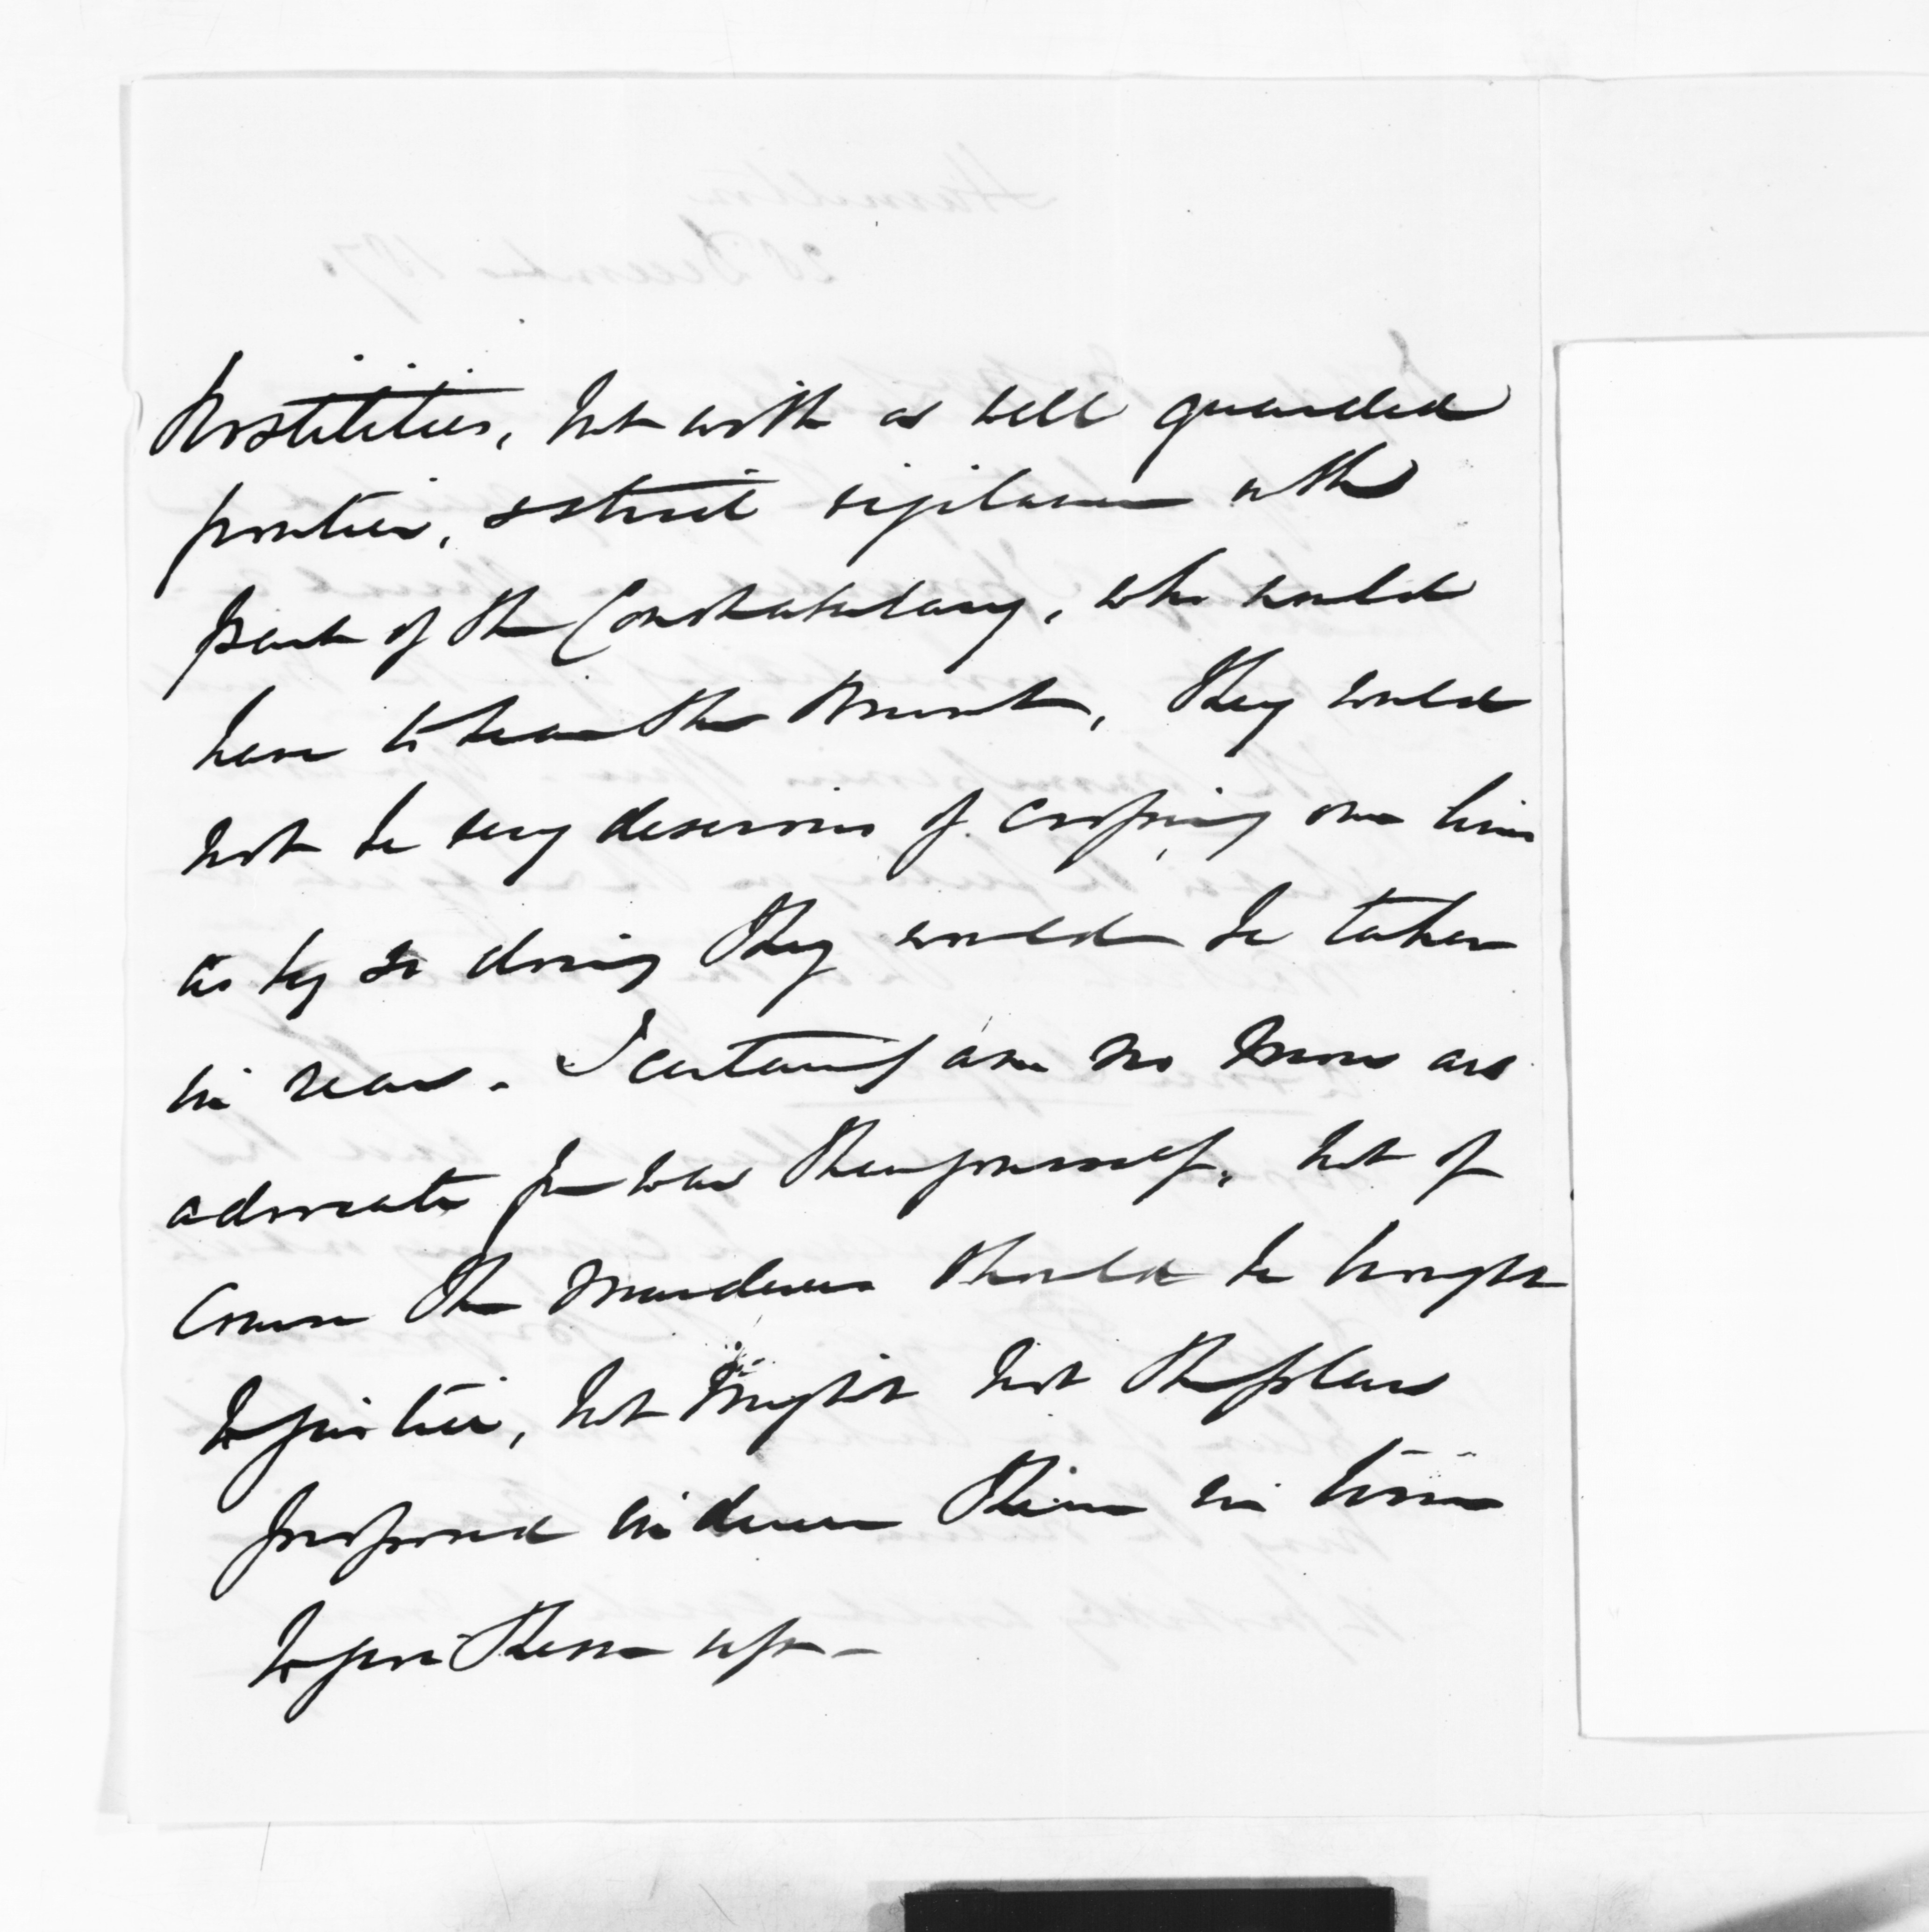 hostilities, but with a well guarded
frontier, & strict vigilance on the
part of the Constabulary, who would
have to bear the brunt, they would
not be very desirous of crossing our line
as by so doing they would be taken
in rear. I certainly am no more an
advocate for war than yourself, but of
course the murderers should be brought
to justice, but might not the plan
proposed induce them in time
to give them up -